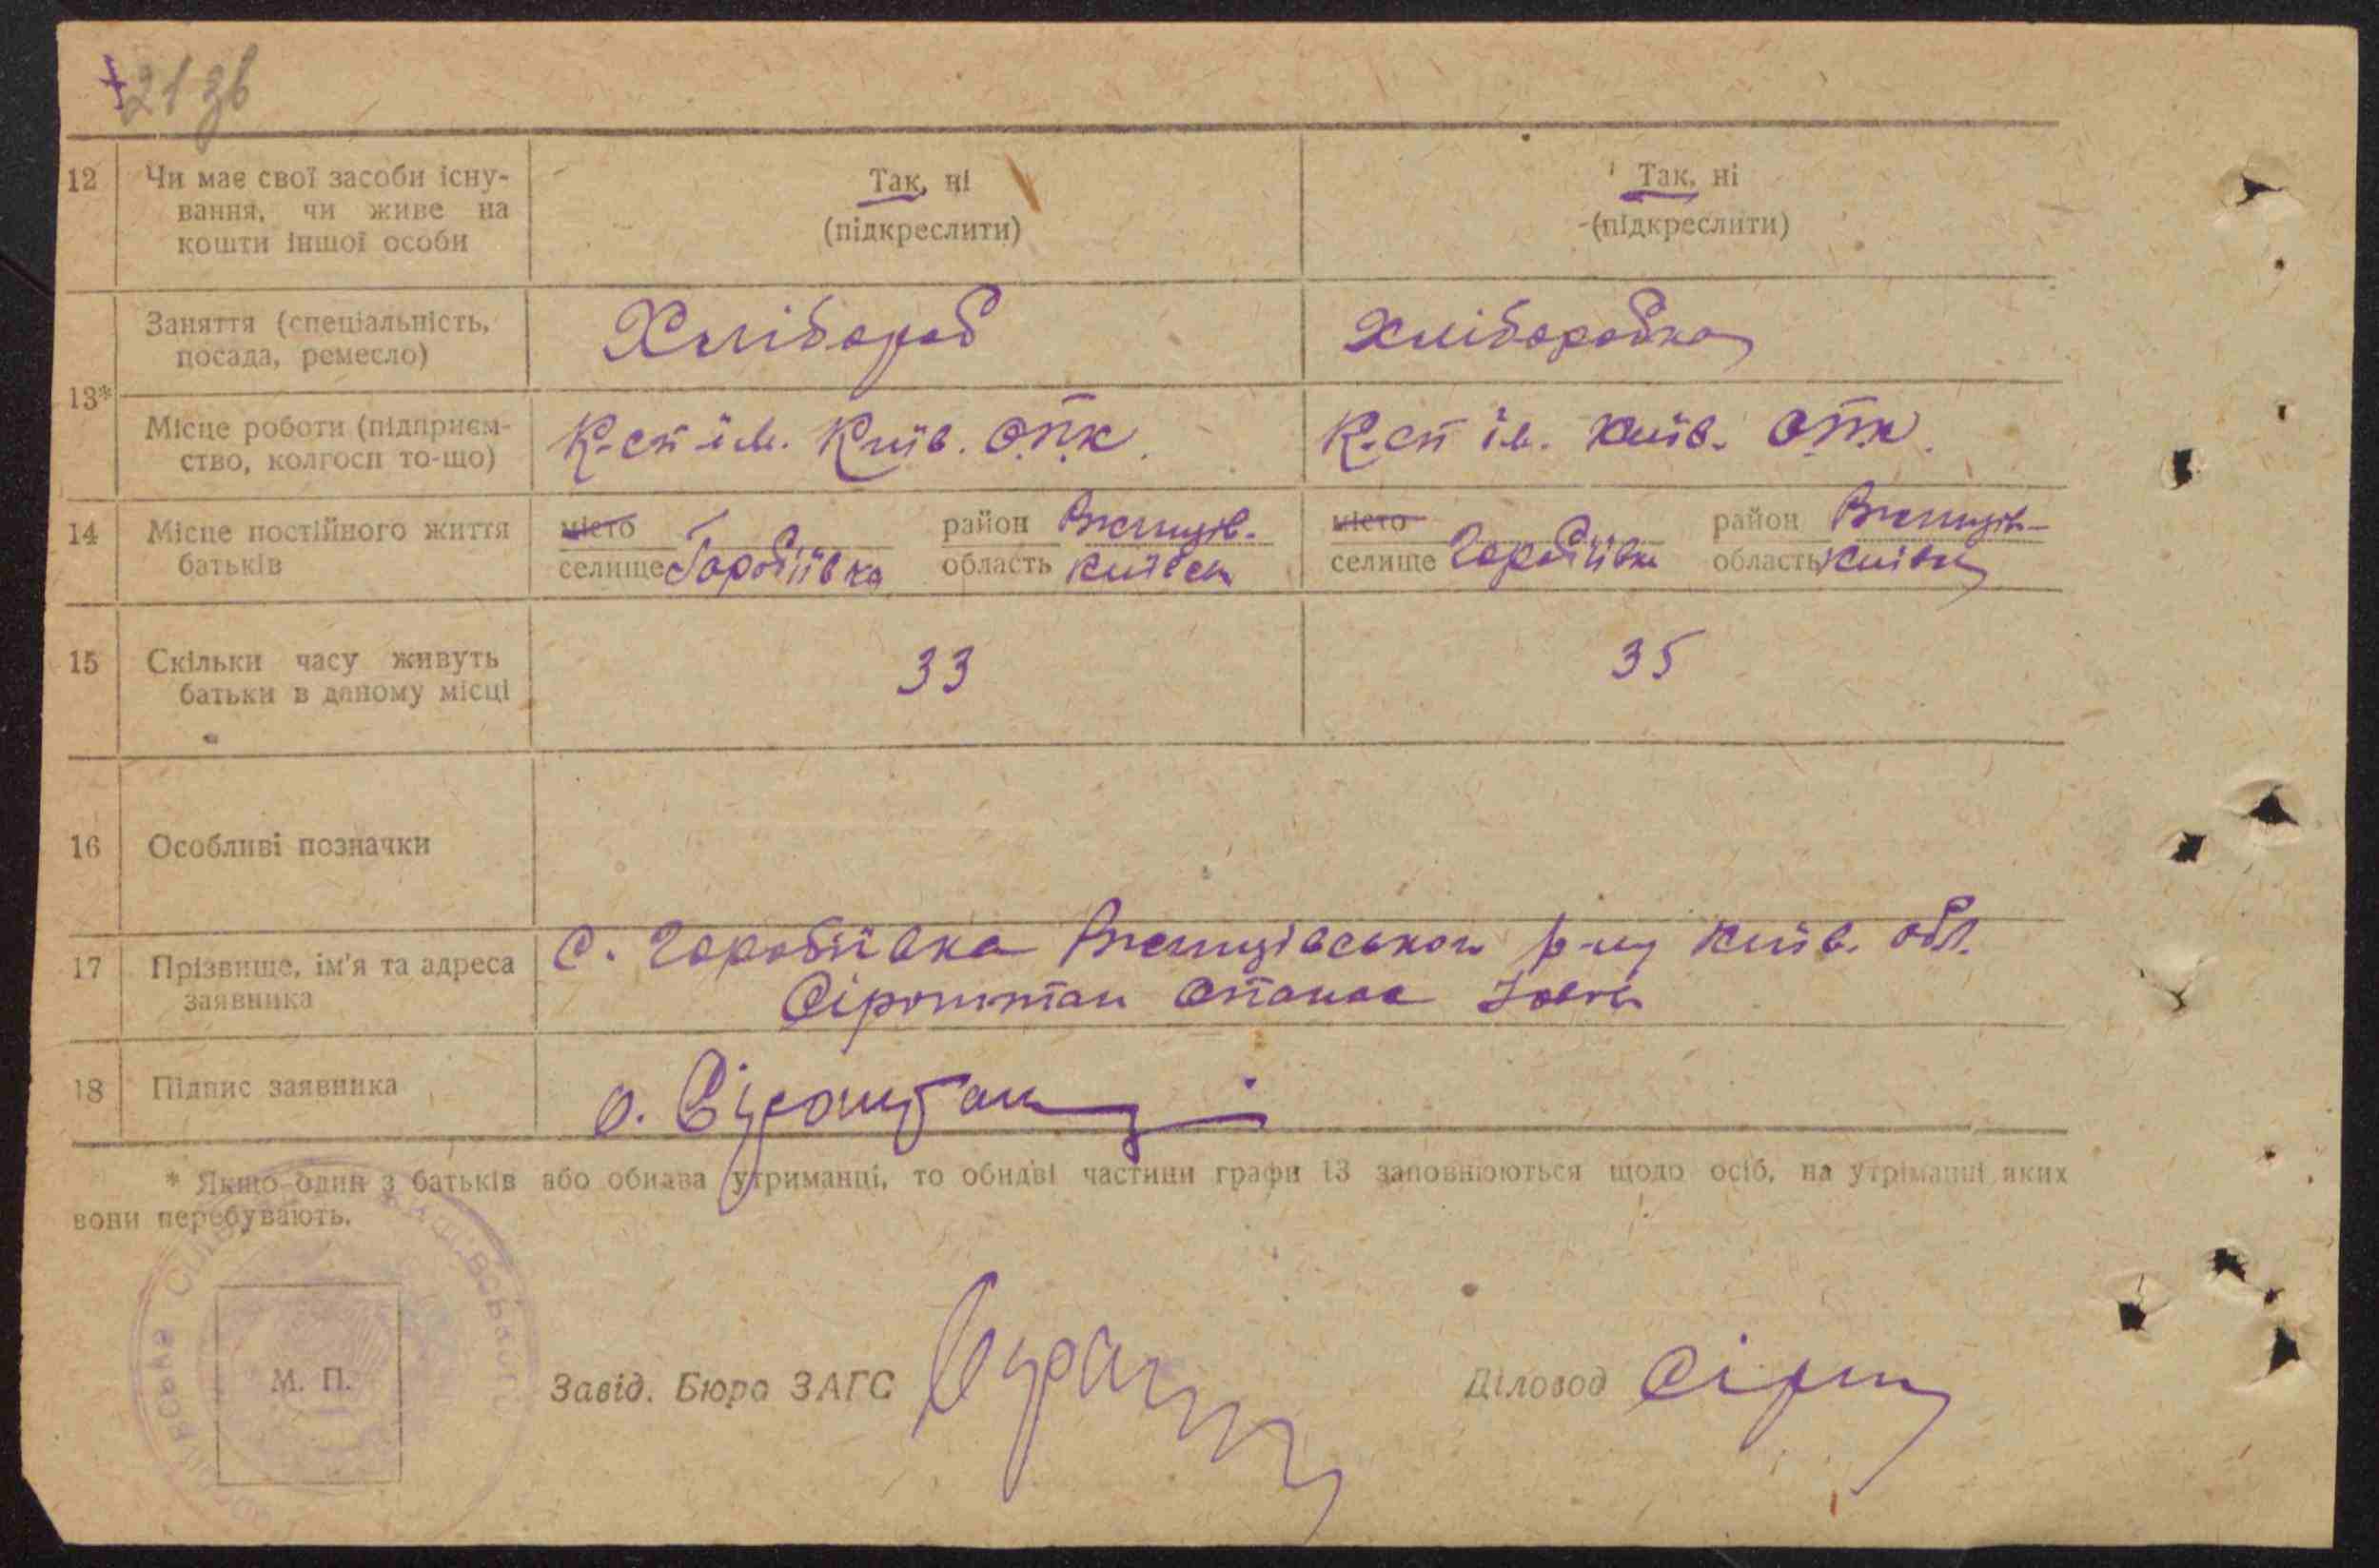 21 зв
12 Чи має свої засоби існу- Так, ні Так, ні
вання, чи живе на (підкреслити) (підкреслити)
кошти іншої особи
Заняття (спеціальність, Хлібороб Хліборобка
посада, ремесло)
13*
Місце роботи (підприєм- К-сп ім. Київ. О.П.К. К-сп ім. Київ. О.П.К.
ство, колгосп то-що)
14 Місце постійного життя місто район Ржищів. місто район Ржищів-
батьків селище Горобіївка область Київськ селище Горобіївка область Київськ
15 Скільки часу живуть 33 35
батьки в даному місці
16 Особливі позначки
17 Прізвище, ім'я та адреса с. Горобіївка Ржищівського р-ну Київ. обл.
заявника Сіроштан Опанас
18 Підпис заявника О. Сіроштан
* Якщо один з батьків або обидва утриманці, то обидві частини графи 13 заповнюються щодо осіб, на утріманні яких
вони перебувають.
М. П.
Завід. Бюро ЗАГС Діловод